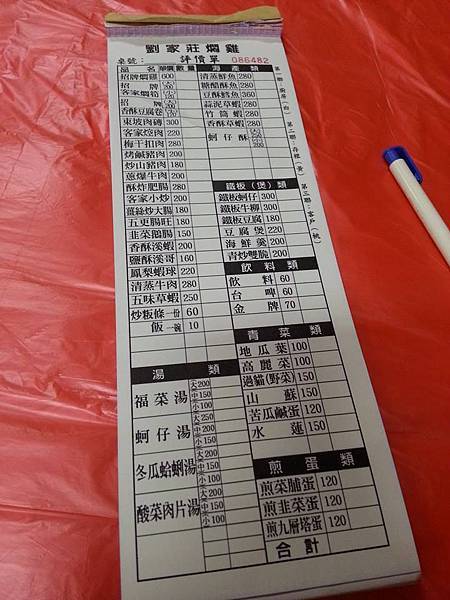 劉家莊燜雞
桌號： 評價單 086482
品名 單價 數量
招牌燜雞 600
招牌
客家燜筍
招牌
香酥豆腐卷
東坡肉磚 300
客家焢肉 220
梅干扣肉 280
烤鹹豬肉 200
炒山豬肉 180
蔥爆牛肉 200
酥炸肥腸 280
客家小炒 200
薑絲炒大腸 180
五更腸旺 180
韭菜鵝腸 150
香酥溪蝦 200
鹽酥溪哥 160
鳳梨蝦球 220
清蒸牛肉 280
五味草蝦 250
炒粄條一份 60
飯一碗 10
湯類
福菜湯 大200 中150 小100
蚵仔湯 大250 中200 小150
冬瓜蛤蜊湯 大200 中150 小100
酸菜肉片湯 大200 中150 小100
海產類
清蒸鮮魚 280
糖醋酥魚 280
豆酥鱈魚 360
蒜泥草蝦 280
竹筒蝦 280
香酥草蝦 280
蚵仔酥 小200
鐵板(煲)類
鐵板蚵仔 300
鐵板牛柳 300
鐵板豆腐 180
豆腐煲 220
海鮮羹 200
青炒雙脆 200
飲料類
飲料 60
台啤 60
金牌 70
青菜類
地瓜葉 100
高麗菜 100
過貓(野菜) 150
山蘇 150
苦瓜鹹蛋 120
水蓮 150
煎蛋類
煎菜脯蛋 120
煎韭菜蛋 120
煎九層塔蛋 120
合計
第一聯：廚房(白) 第二聯：存根(黃) 第三聯：客戶(紅)